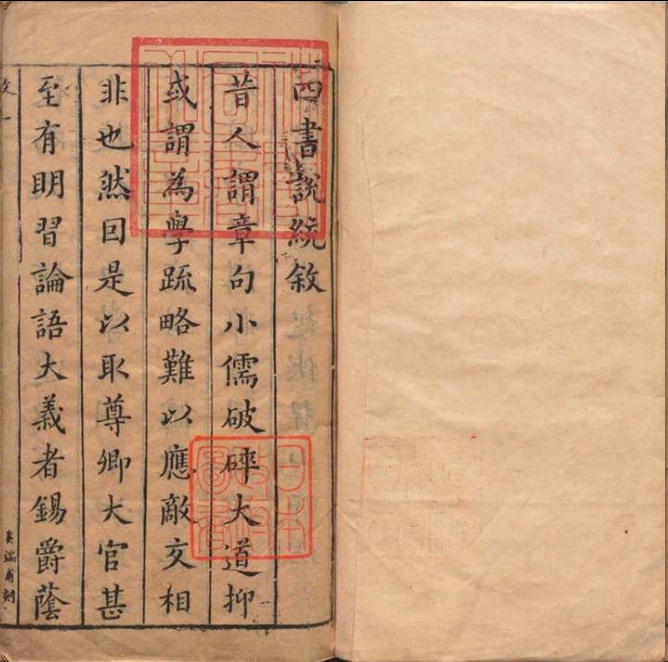 四書說統敘
昔人謂章句小儒破碎大道抑
或謂為學疏略難以應敵交相
非也然回是以取尊卿大官甚
至有明習論語大義者錫爵蔭